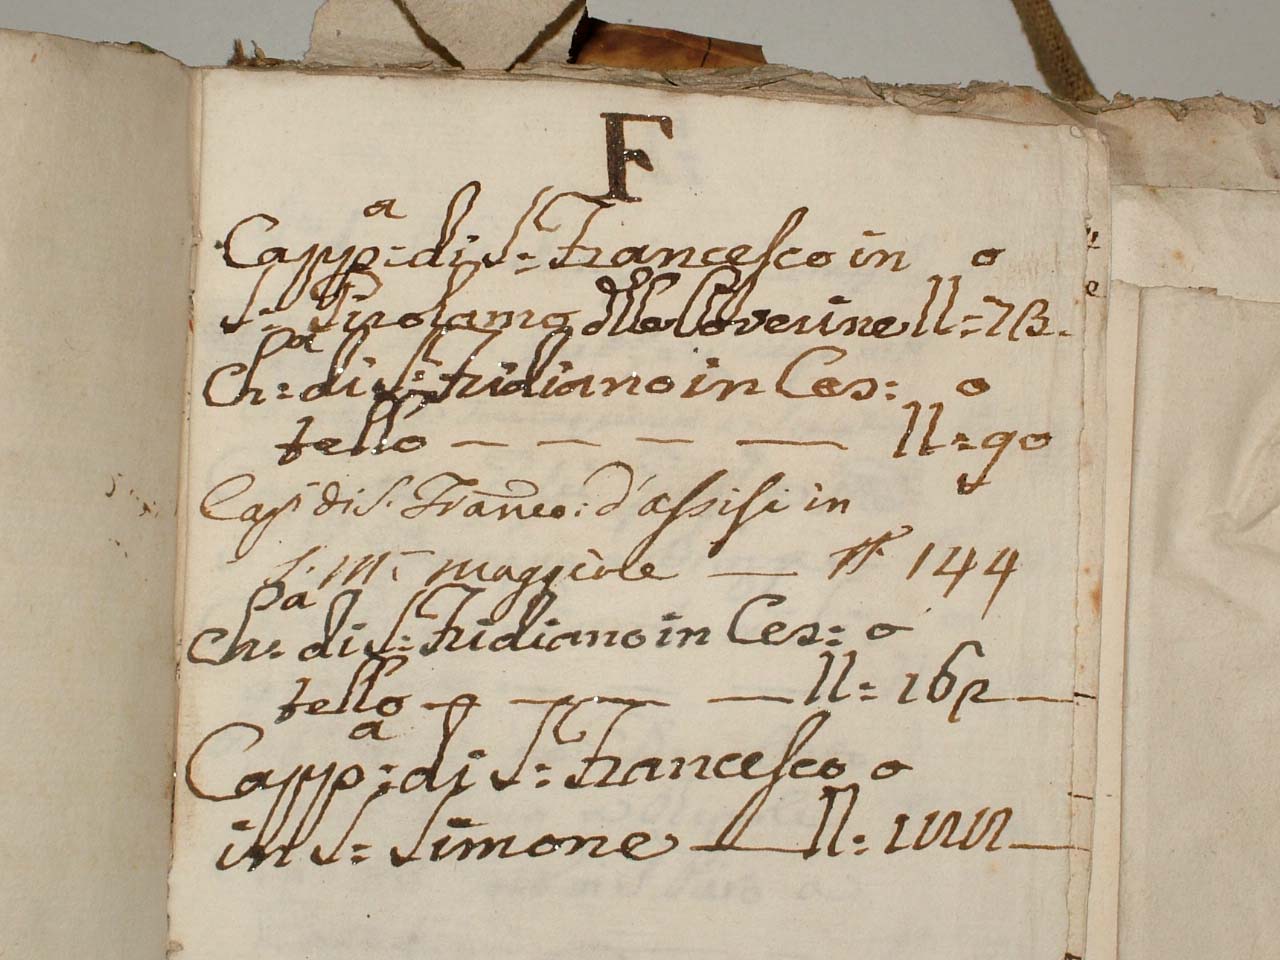 F
Capp:a di S: Francesco in
S: Girolamo delle Poverine ll:o 73.
Ch:pa di S: Fridiano in Ces:
tello — — — — ll:o 90
Cap di S. Franco: d'assisi in
S. M: maggiore — 144
Ch:pa di S: Fridiano in Ces:
tello — — — — ll:o 162
Capp:a di S: Francesco
in S: Simone — ll:o